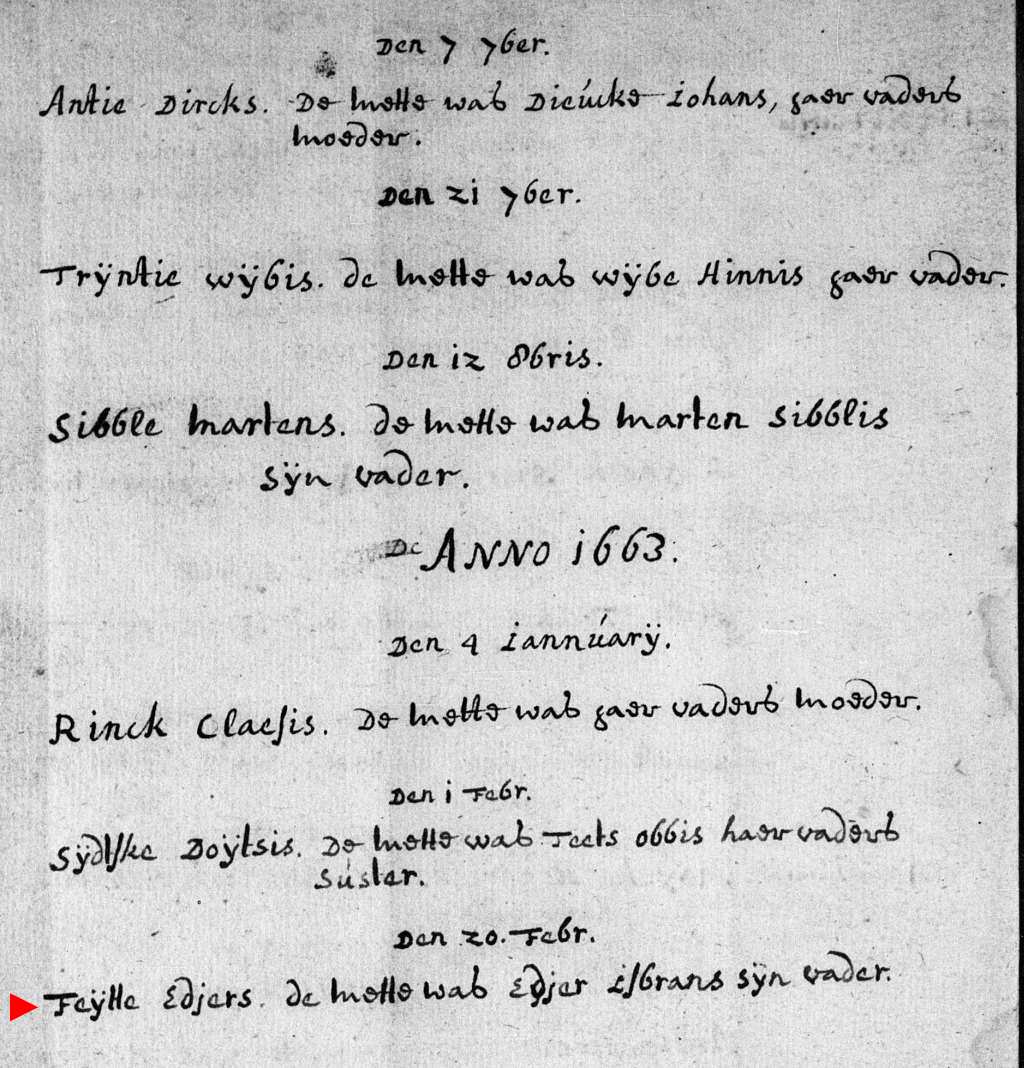 Den 7 7ber.
Antie Dircks. De mette was Dieúcke iohans, haer vaders
moeder.
Den 21 7ber.
Trÿntie wÿbis. de mette was wÿbe Hinnis haer vader.
Den 12 8bris.
Sibble martens. de mette was marten sibblis
sÿn vader.
De ANNO 1663.
Den 4 iannúarÿ.
Rinck Claesis. De mette was haer vaders moeder.
Den 1 Febr.
Sÿdtske Doÿtsis. De mette was Teets obbis haer vaders
súster.
Den 20. Febr.
Feÿtte Edjers. de mette was Edjer isbrans sÿn vader.